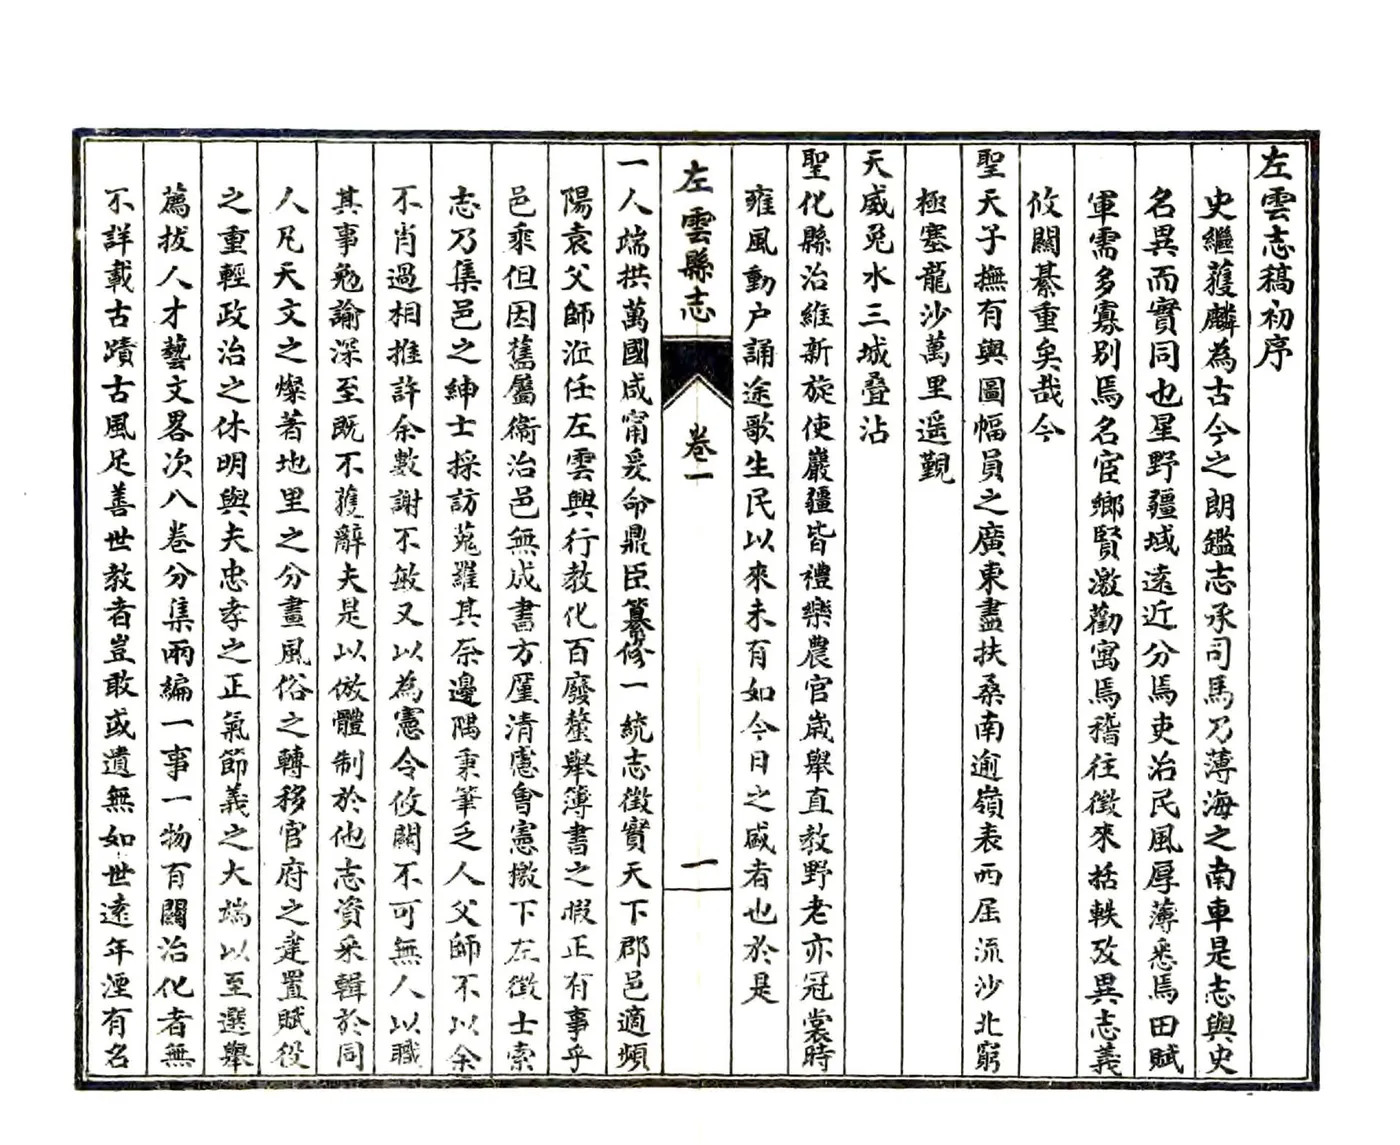 左雲志稿初序
史繼蒦麟為古今之朗鑑志承司馬乃薄海之南車是志與史
名異而實同也星野疆域遠近分焉吏治民風厚薄悉焉田賦
軍需多寡别焉名宦鄉賢激勸寓焉稽往徵來括軼攷異志義
攸關綦重矣哉今
聖天子撫有輿圖幅員之廣東盡扶桑南逾嶺表西屈流沙北窮
極塞龍沙萬里遥覲
天威兎水三城疊沾
聖化縣治維新旋使巖疆皆禮樂農官歲舉直教野老亦冠裳時
雍風動户誦途歌生民以來未有如今日之盛者也於是
左雲縣志
卷一
一
一人端拱萬國咸甯爰命鼎臣纂修一統志徵實天下郡邑適頻
陽袁父師涖任左雲興行教化百廢釐舉簿書之暇正有事乎
邑乘但因舊屬衞治邑無成書方厪清慮會憲檄下左徵士索
志乃集邑之紳士採訪蒐羅其奈邊隅秉筆乏人父師不以余
不肖過相推許余數謝不敏又以為憲令攸關不可無人以職
其事勉諭深至既不蒦辭夫是以倣體制於他志資采輯於同
人凡天文之燦著地里之分畫風俗之轉移官府之建置賦役
之重輕政治之休明與夫忠孝之正氣節義之大端以至選舉
薦拔人才藝文畧次八卷分集兩編一事一物有關治化者無
不詳載古蹟古風足善世教者豈敢或遺無如世遠年湮有名